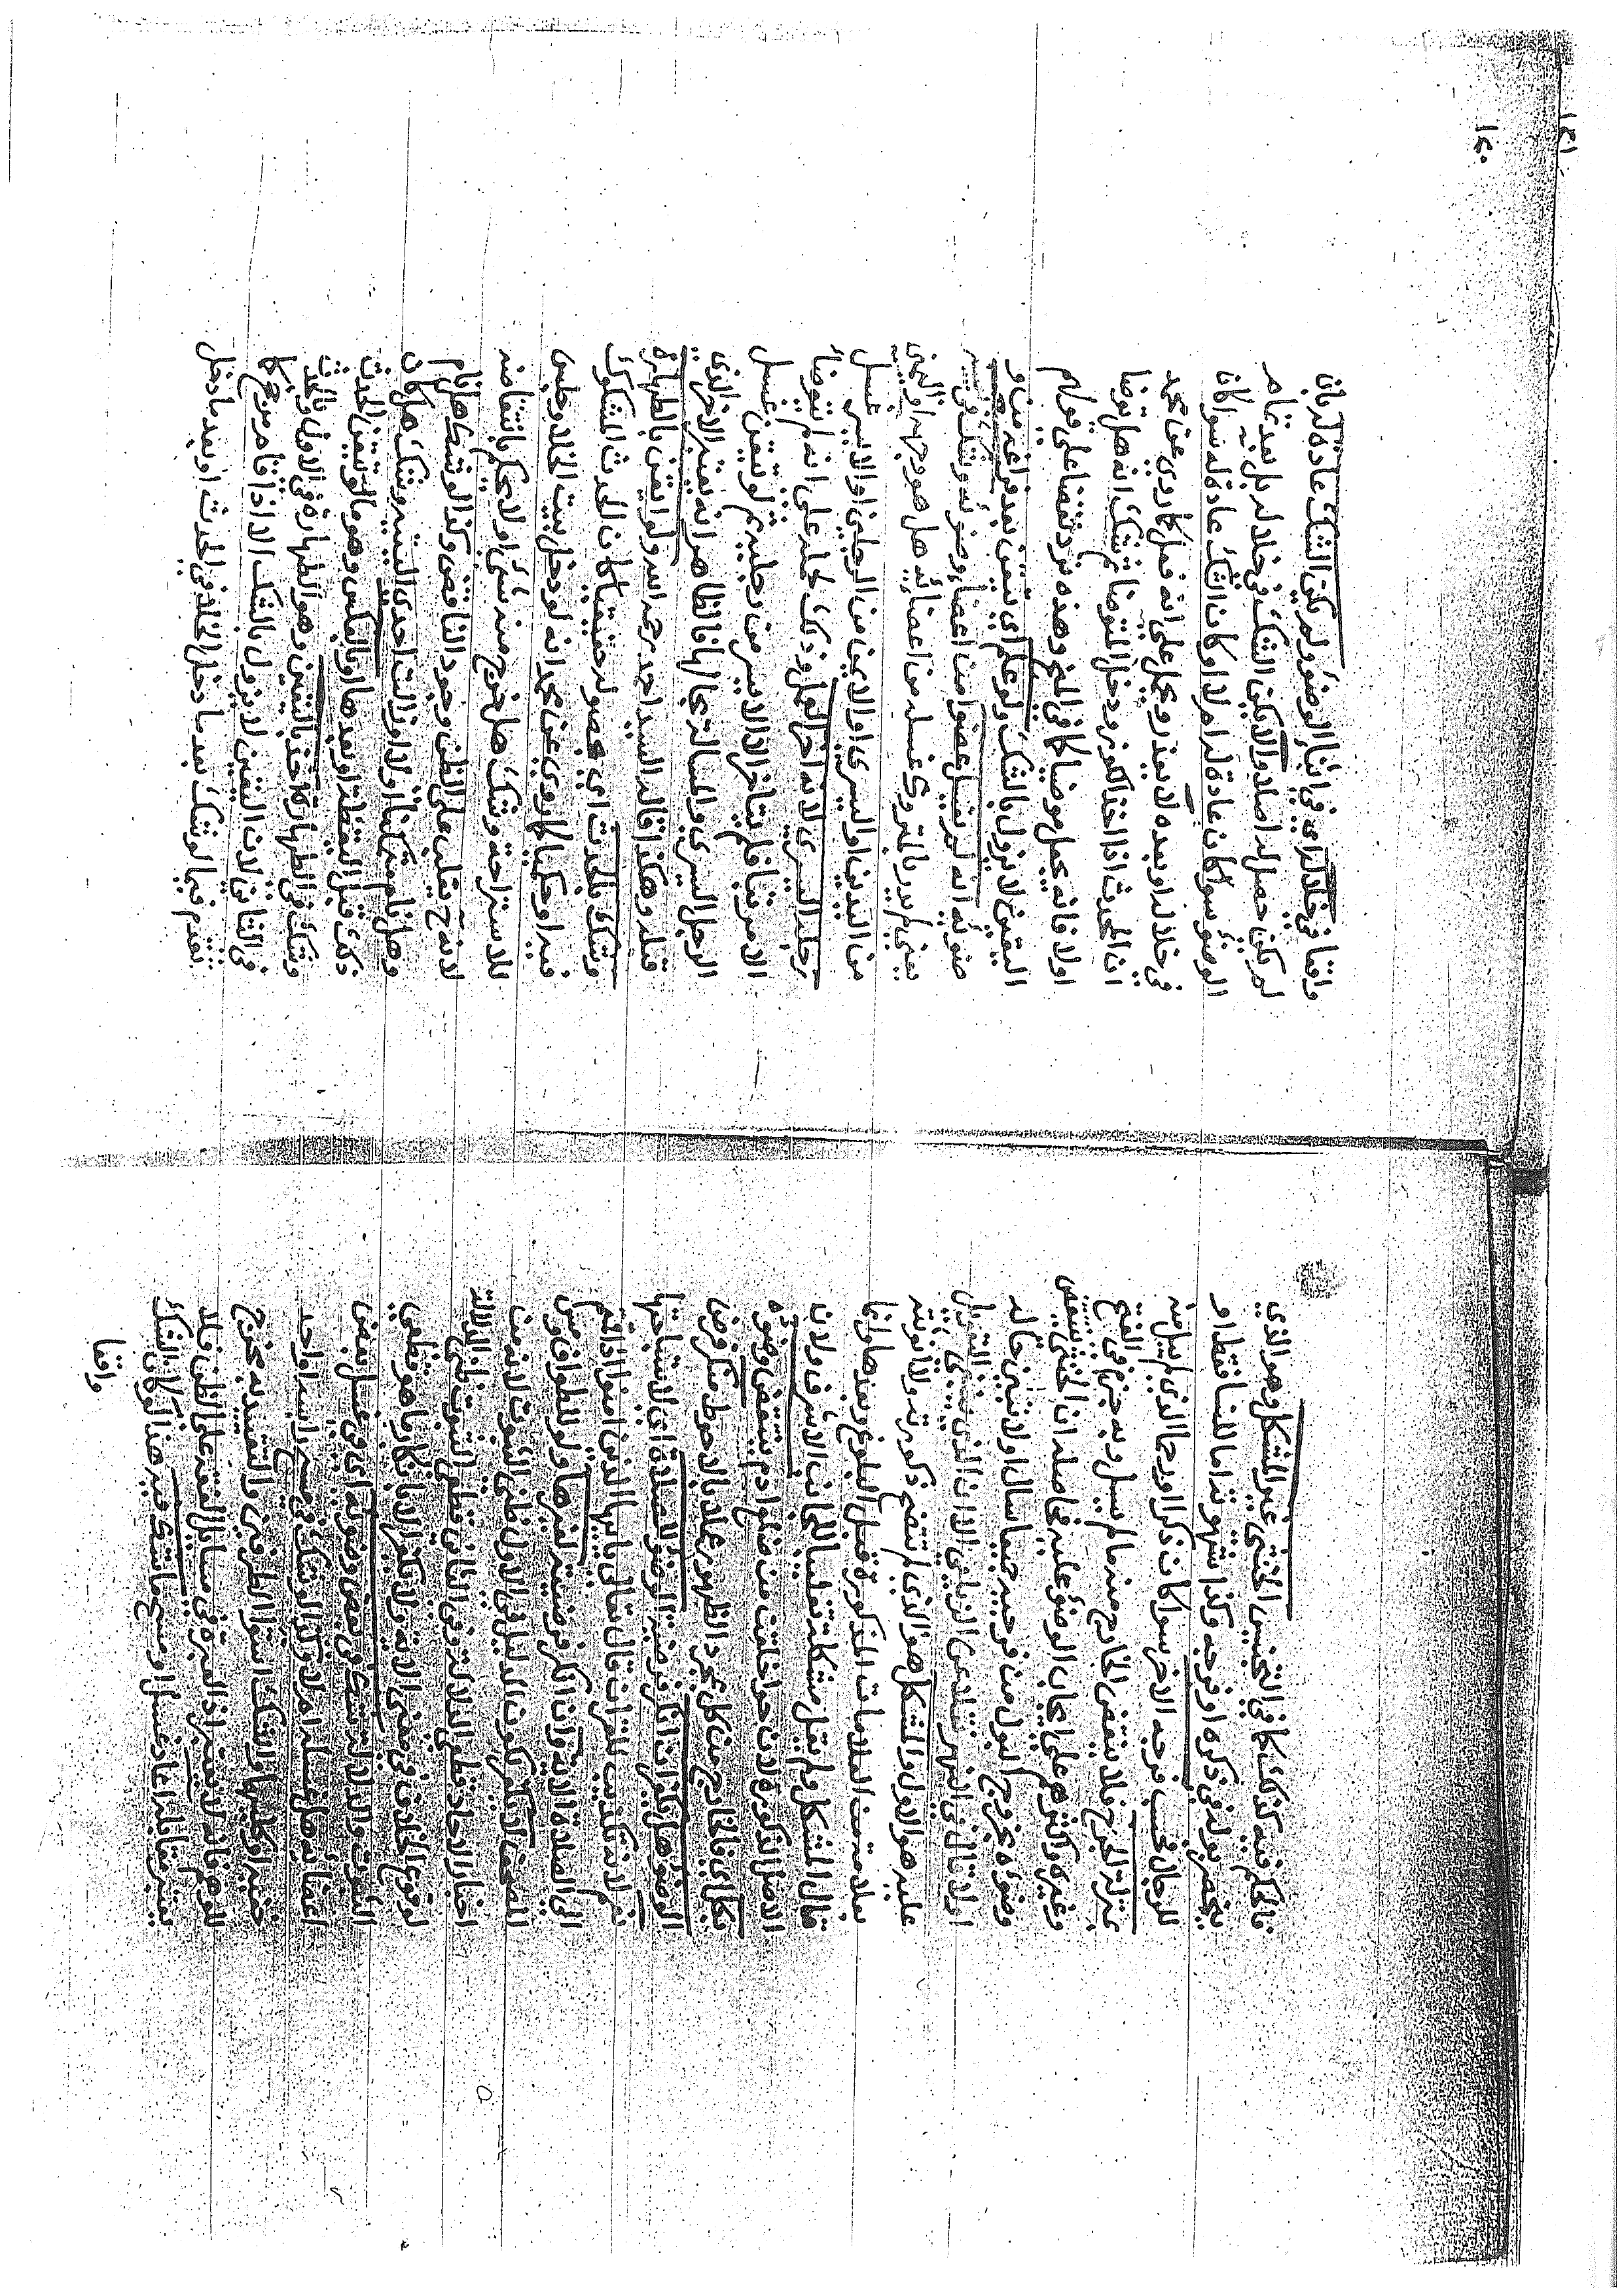 فالحكم فيه كذلك كما في التجنيس الخنثى غير المشكل وهو الذي
يحضر بوله في ذكره او فرجه وكذا شهوته اما للنسا فقط او
للرجال فحسب فرجه الاخر سوا كان ذكرا او رحما الذي لم يبل منه
بمنزلة الجرح فلا ينقض الخارج منه ما لم يسل وبه جزم في الفتح
وغيره واكثرهم على ايجاب الوضوء عليه فحاصله ان الخنثى ينتقض
وضوءه بخروج البول من فرجيه جميعا سال اولا تبين حاله
اولا قال في النهر الزيلعي الا ان الذي ينبغي التعويل
عليه هو الاول والمشكل هو الذي لم تتضح ذكوريته ولا انوثته
بعلامة من العلامات المذكورة قبل البلوغ وبعدها وانما
قال المشكل ولم يقل مشكلة تغليبا للجانب الاشرف ولان
الاصل الذكورة لان حوا خلقت من ضلع ادم ينتقض وضوءه
بكل اي بالخارج من كل بمجرد الظهور عملا بالاحوط منكر فرض
الوضوء هل يكفر ان انكر فرضية الوضوء للصلاة اي لاستباحتها
نعم لانه تكذيب للقران قال تعالى يا ايها الذين امنوا اذا قمتم
الى الصلاة الاية وان انكر فرضيته لغيرها ولو للطواف ومس
المصحف لا يكفر لكون الدليل في الاول ظني الثبوت لانه من
اخبار الاحاد قطعي الدلالة وفي الثاني قطعي الثبوت ظني الدلالة
لوقوع الخلاف في معنى الاية ولا يكفر الا بانكار ما هو قطعي
الثبوت والدلالة شك في بعض وضوئه اي في غسل بعض
اعضائه هل غسله ام لا وكذا لو شك في مسح راسه او احد
خفيه او كليهما والشك استوا الطرفين والتقييد به يخرج
الوهم فانه لا يعتبر اذ العبرة في مسايل الفقه على الظن فلا
يعتبر مقابله اعاد غسل او مسح ما شك فيه هذا لو كان الشك
واقعا
١٤٠
١٤١
واقعا في خلاله اي في اثناء الوضوء ولم يكن الشك عادة له بان
لم يكن حصل له اصلا والا يكن الشك في خلاله بل بعد تمام
الوضوء سوا كان عادة له ام لا او كان الشك عادة له سوا كان
في خلاله او بعده لا يعيد ويحمل على انه فعل كما روي عن محمد
ان المحدث اذا اخذ الكوز ودخل ليتوضا ثم شك انه هل توضا
اولا فانه يجعل متوضيا كما في المنح وهذه ترد نقضا على قولهم
اليقين لا يزول بالشك ولو علم اي تيقن بعد فراغه من و
ضوئه انه لم يغسل عضوا من اعضا وضوئه وشك في تعيينه
يعني لم يدر بالمتروك غسله من اعضائه هل هو وجهه او اليمنى
من اليدين او اليسرى او الايمن من الرجلين او الايسر غسل
رجله اليسرى لانه اخر العمل وذلك حملا على انه لم يتوضا
الا مرتبا فلم يتاخر الا الايسر من رجليه ثم لو تيقن غسل
الرجل اليسرى والمسالة بحالها فالظاهر انه يعتبر الاخر الذي
قبله وهكذا قاله السيد احمد رحمه الله ولو ايقن بالطهارة
وشك بالحدث اي بحصوله حقيقة كما كان الحدث المشكوك
فيه او حكميا كما روي عن محمد انه لو دخل بيت الخلا وجلس
للاستراحة وشك هل خرج منه شي اولا يحكم بانتقاضه
لانه ح يغلب على الظن وجود الناقض وكذا لو شك هل نام
وهل نام متمكنا اولا او زالت احدى اليتيه وشك هل كان
ذلك قبل اليقظة او بعدها او بالعكس وهو ما لو تيقن الحدث
وشك في الطهارة اخذ باليقين وهو الطهارة في الاول والحدث
في الثاني لان اليقين لا يزول بالشك الا اذا قام مرجح كما
تقدم فيما لو شك بعد ما دخل الخلا في الحدث او بعد ما دخل